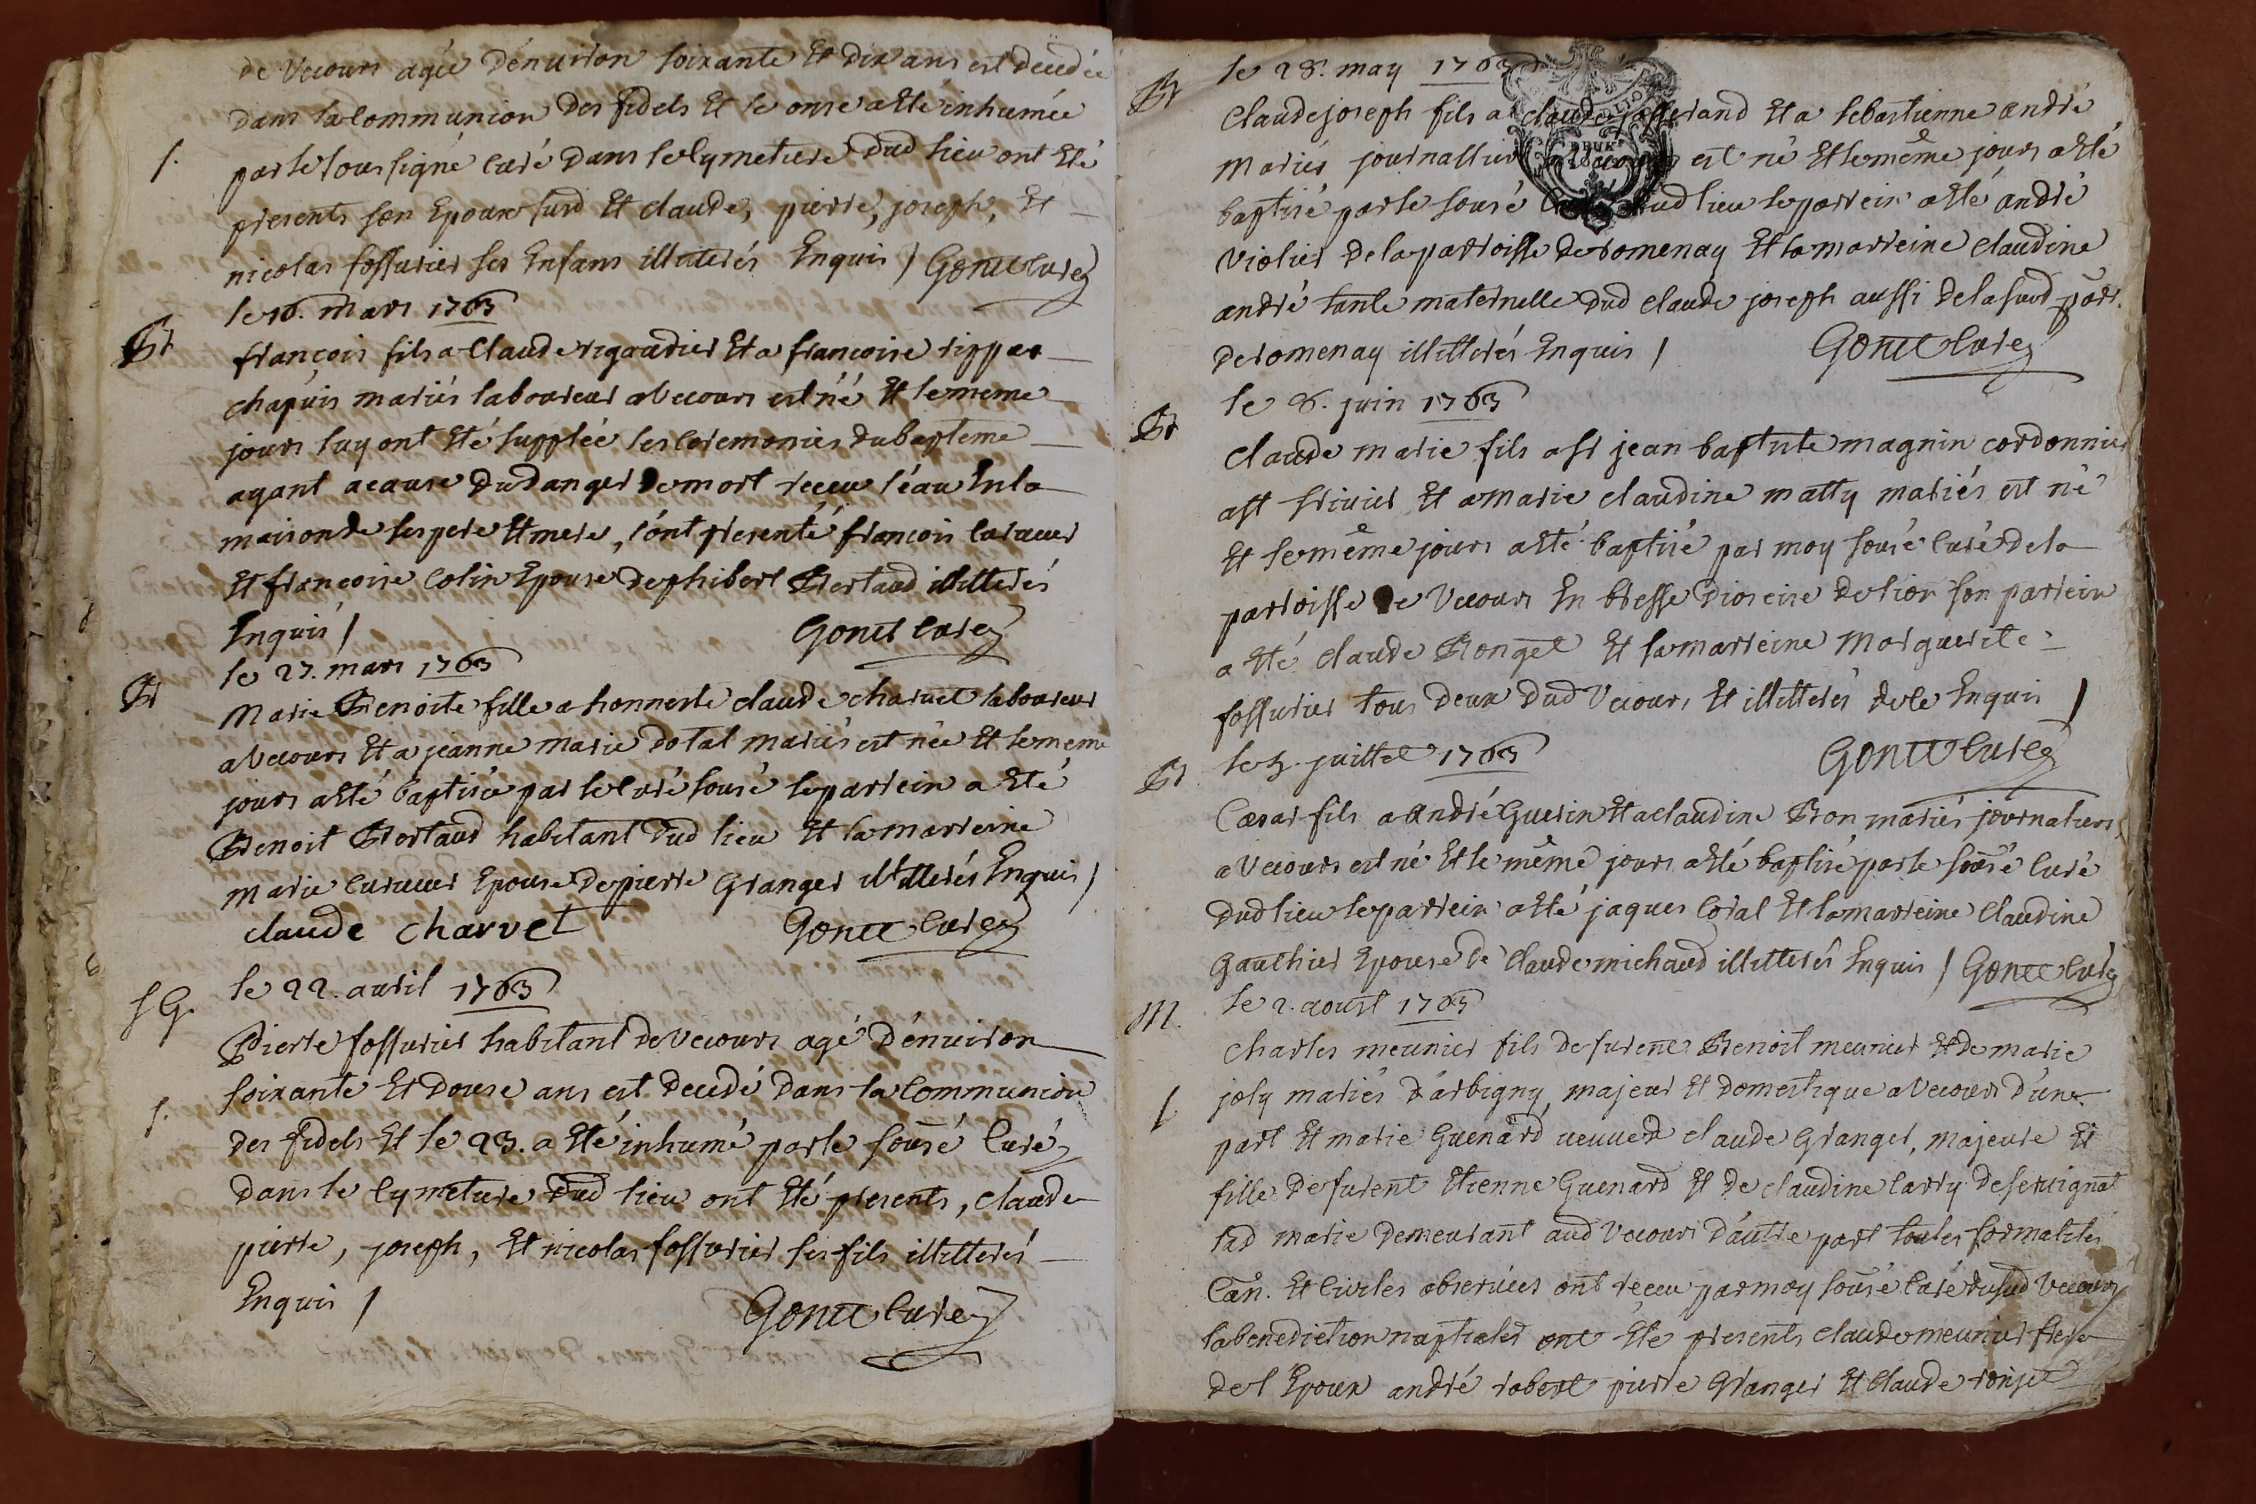 de Vecours agée d'énuiron soixante Et dix ans est decedée
dans la Communion des fidels Et le onse a Eté inhumée
S. par le sous signé Curé dans le Cymetiere dud lieu ont Eté
presents son Epoux susd Et claude, pierre, joseph, Et
nicolas fossurier ses Enfans illiterés Enquis / Gonet Curé
le 16. mars 1763
Bt françois fils a Claude rigaudier Et a francoise rippes
chapuis mariés laboureur a Vecours est né Et le meme
jours luy ont Eté supplée les Ceremonies du bapteme
ayant a cause du danger de mort receu l'éau En la
maison de ses pere Et mere, l'ónt presenté françois Curveur
Et francoise Colin Epouse de phibert Bertaud illitterés
Enquis / Gonet Curé
le 27. mars 1763
Bt Marie Benoite fille a honneste claude charuet laboureur
a Vecours Et a jeanne marie dotal mariés est née Et le meme
jours a Eté baptisée par le Curé sousé le parrein a Eté
Benoit Bertaud habitant dud lieu Et la marreine
marie Curveur Epouse de pierre Granger illitterés Enquis /
claude charvet Gonet Curé
S G. le 22. auril 1763
Pierre fossurier habitant de Vecours agé d'énuiron
soixante Et douse ans est decedé dans la Communion
S. des fidels Et le 23. a Eté inhumé par le sousé Curé
dans le Cymetiere dud lieu ont Eté presents, claude
pierre, joseph, Et nicolas fossurier ses fils illitterés
Enquis / Gonet Curé
le 28. may 1763
Bt Claude joseph fils a claude josserand Et a sebastienne andré
mariés journallier a Vecours est né Et le même jours a Eté
baptisé par le sousé Curé dud lieu le parrein a Eté andré
Violier de la parroisse de romenay Et la marreine Claudine
andré tante maternelle dud claude joseph aussi de la susd parr.
de romenay illitterés Enquis / Gonet Curé
le 8. juin 1763
Bt Claude marie fils a sr jean baptiste magnin cordonnier
a st trivier Et a marie claudine matty mariés est né
Et le même jours a Eté baptisé par moy sousé Curé de la
parroisse de Vecours En bresse diocese de lion son parrein
a Eté claude Ronget Et la marreine Marguerite
fossurier tous deux dud Vecours Et illitterés de ce Enquis /
Gonet Curé
Bt le 5. juillet 1763
Cæsar fils a André Guerin Et a claudine Bon mariés journaliers
a Vecours est né Et le même jours a Eté baptisé par le sousé Curé
dud lieu le parrein a Eté jaques Coral Et la marreine Claudine
Gauthier Epouse de Claude michaud illitterés Enquis / Gonet Curé
M. le 2. aoust 1763
Charles meunier fils de furent Benoit meunier Et de marie
S joly mariés d'árbigny majeur Et domestique a Vecours d'úne
part Et marie Guenard ueuue de claude Granger, majeure Et
fille de furent Etienne Guenard Et de claudine Carry de seruignat
lad marie demeurant aud Vecours d'áutre part toutes formalités
Can. Et Ciuiles obseruées ont receu par moy sousé Curé dusud Vecours
la benediction nuptiales ont Eté presents claude meunier frere
de l'Epoux andré robert pierre Granger Et Claude ronjet